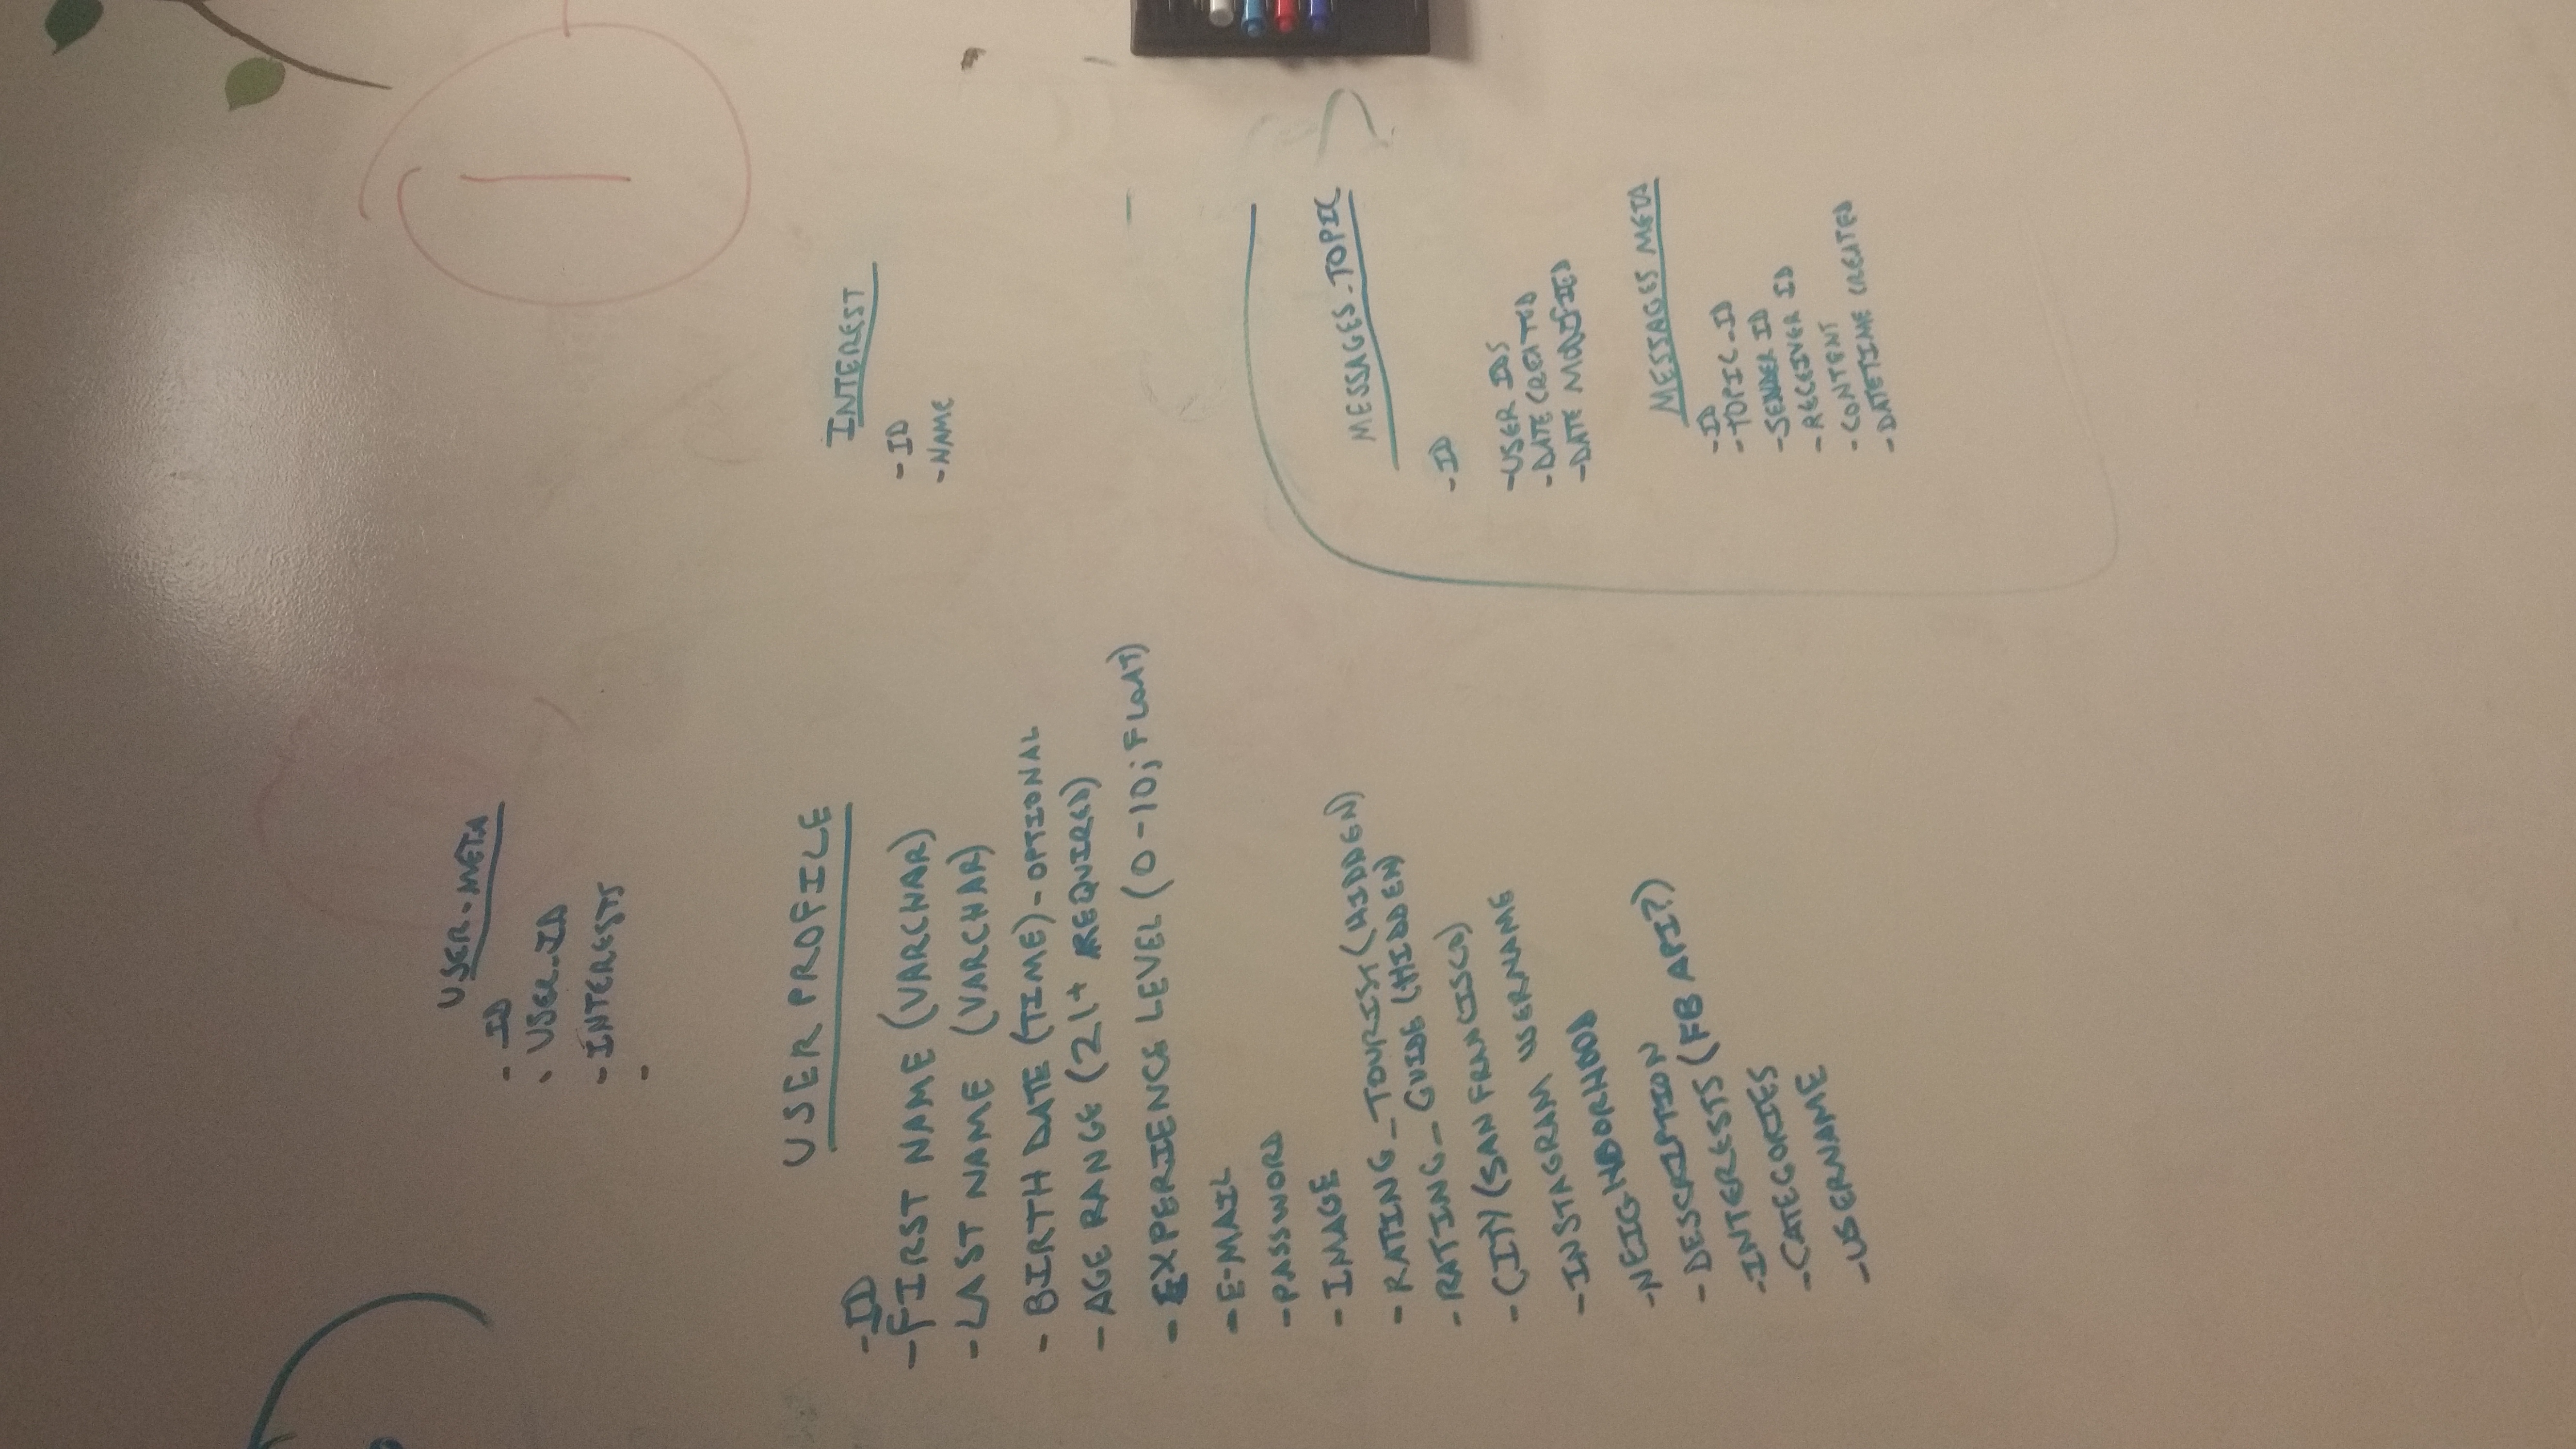 USER-META
- ID
- USER-ID
- INTERESTS
-
USER PROFILE
- ID
- FIRST NAME (VARCHAR)
- LAST NAME (VARCHAR)
- BIRTH DATE (TIME) - OPTIONAL
- AGE RANGE (21+ REQUIRED)
- EXPERIENCE LEVEL (0-10; FLOAT)
- E-MAIL
- PASSWORD
- IMAGE
- RATING_TOURIST (HIDDEN)
- RATING_GUIDE (HIDDEN)
- CITY (SAN FRANCISCO)
- INSTAGRAM USERNAME
- NEIGHBORHOOD
- DESCRIPTION
- INTERESTS (FB API?)
- CATEGORIES
- USERNAME
INTEREST
- ID
- NAME
MESSAGES_TOPIC
- ID
- USER IDS
- DATE CREATED
- DATE MODIFIED
MESSAGES META
- ID
- TOPIC_ID
- SENDER ID
- RECEIVER ID
- CONTENT
- DATETIME CREATED